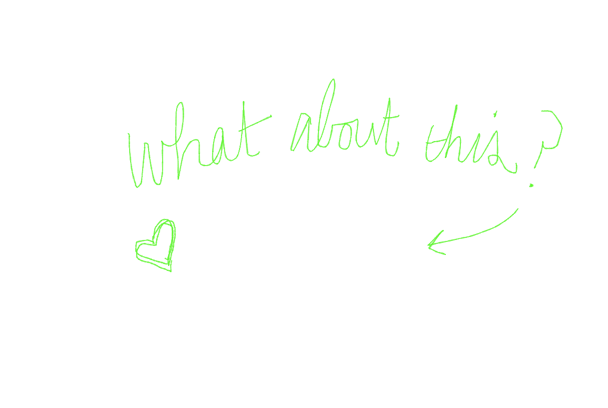 What about this?